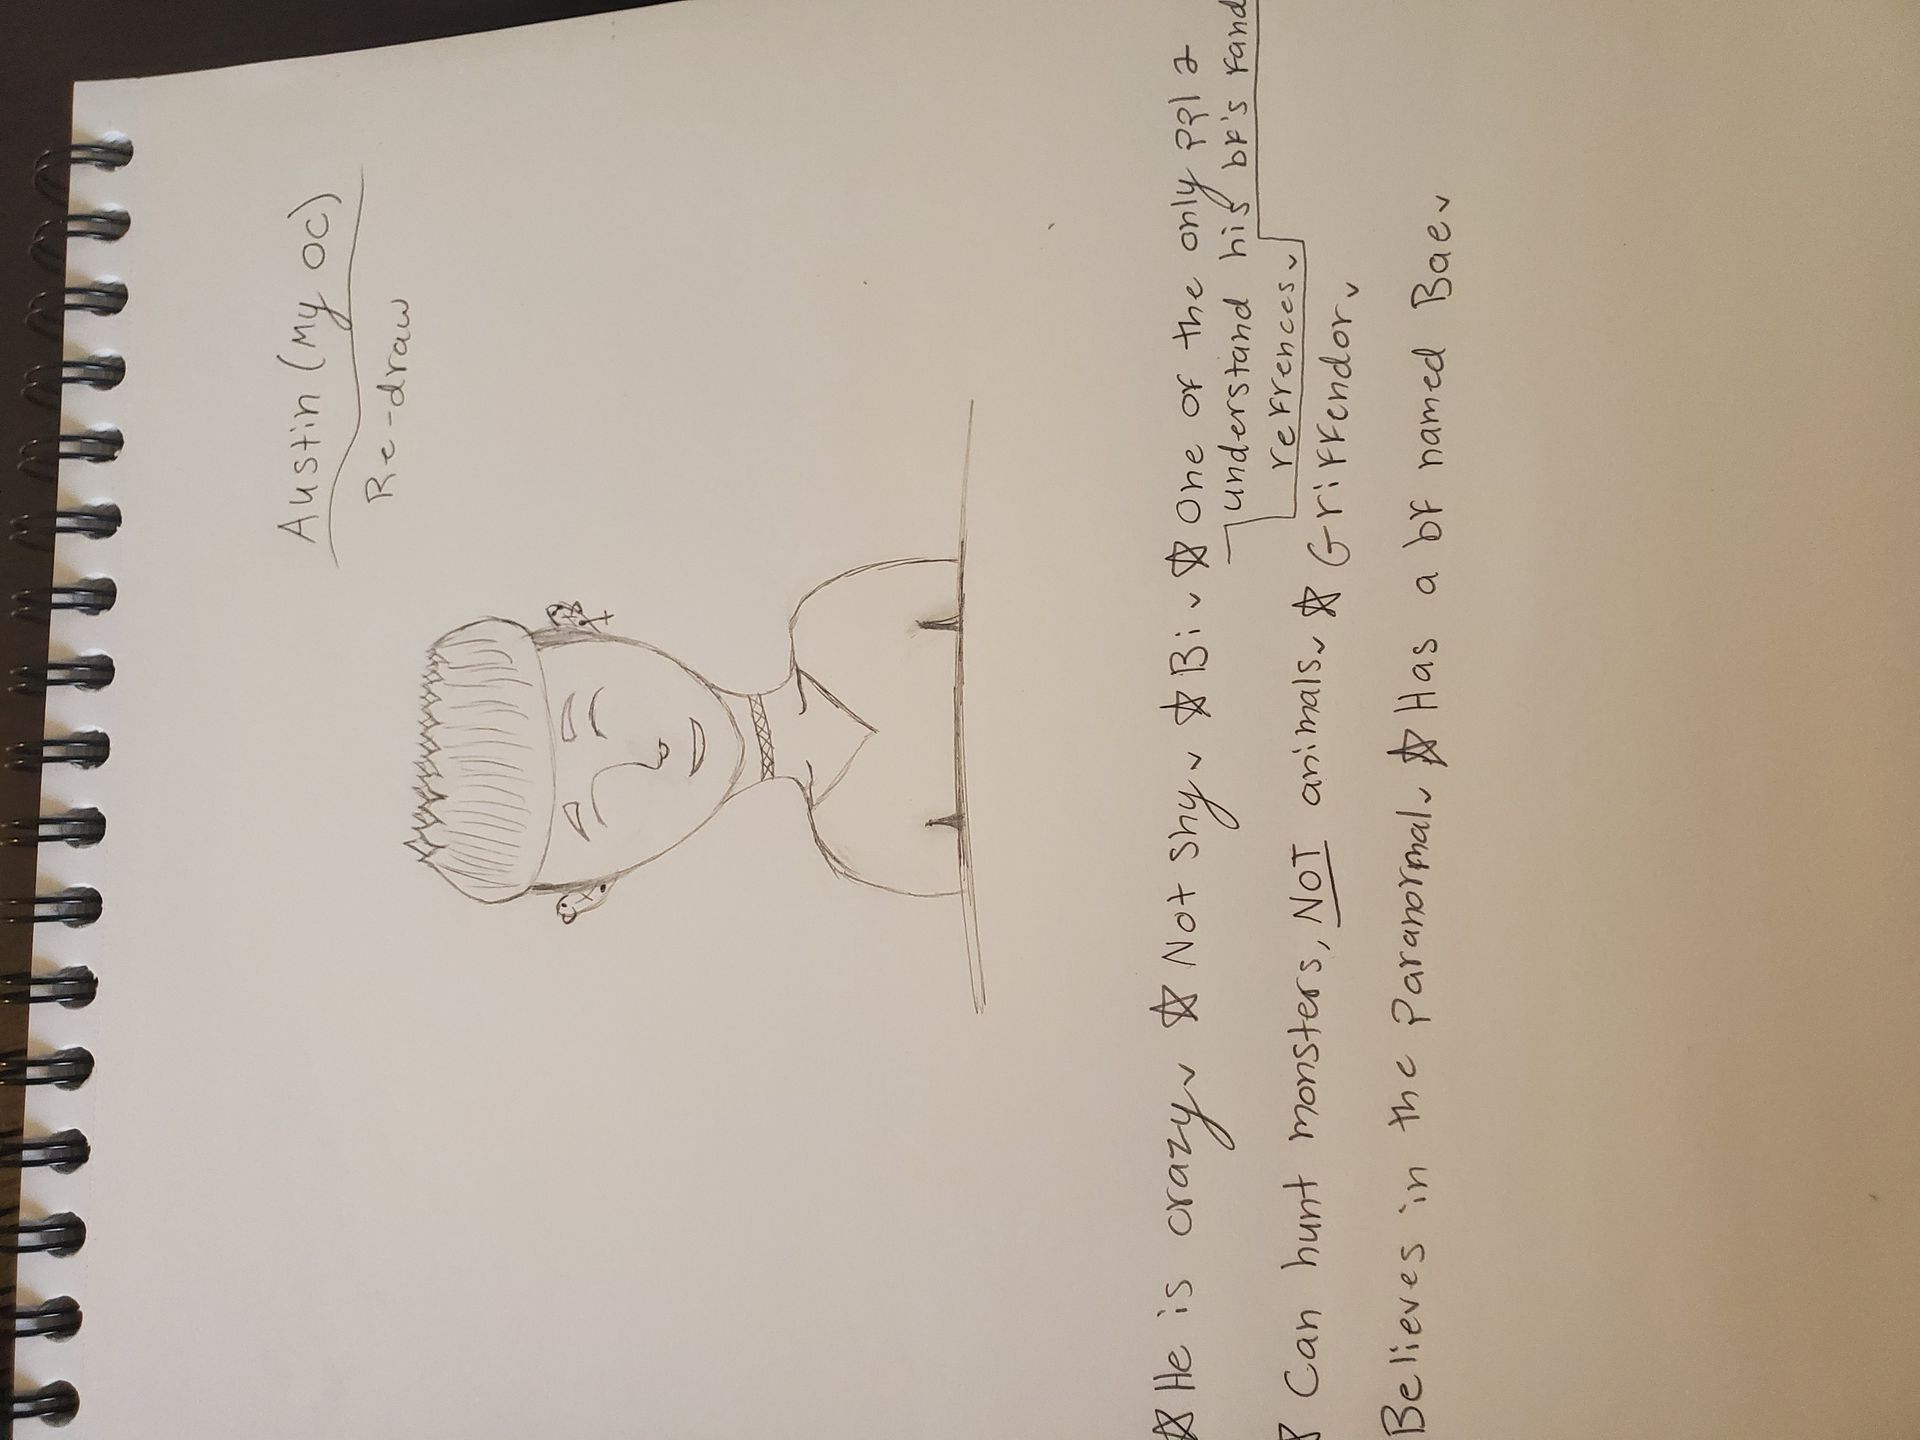 Austin (My OC)
Re-draw
☆ He is crazy. ☆ Not shy. ☆ Bi. ☆ One of the only ppl 2
understand his bf's rand
refrences.
Can hunt monsters, NOT animals. ☆ Griffendor.
Believes in the Paranormal. ☆ Has a bf named Bae.